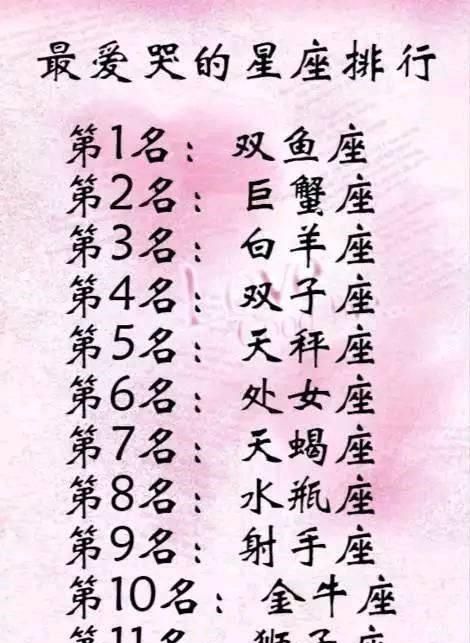 最爱哭的星座排行
第1名：双鱼座
第2名：巨蟹座
第3名：白羊座
第4名：双子座
第5名：天秤座
第6名：处女座
第7名：天蝎座
第8名：水瓶座
第9名：射手座
第10名：金牛座
第11名：狮子座